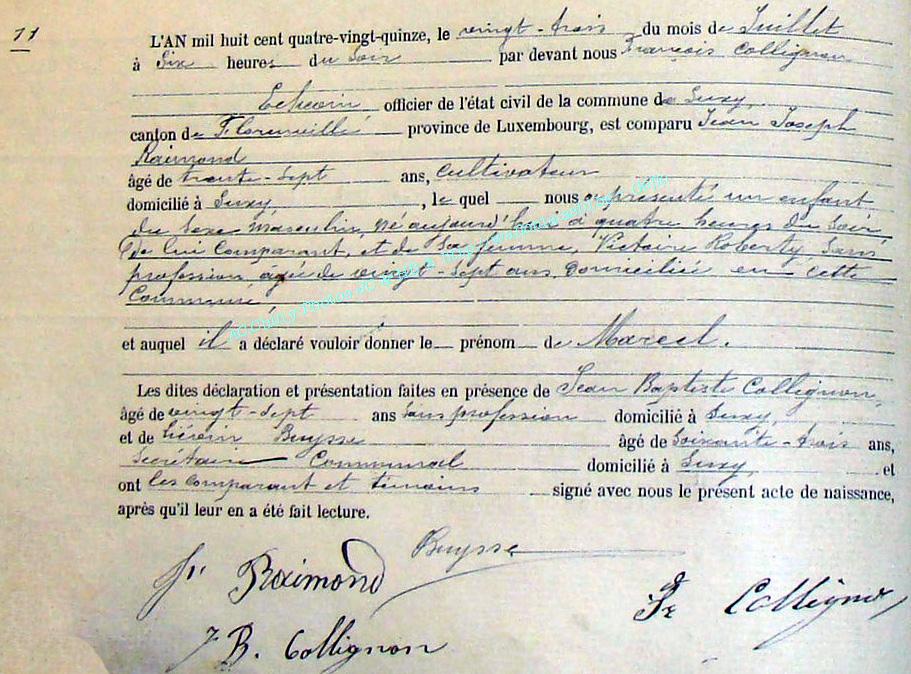 11
L'AN mil huit cent quatre-vingt-quinze, le vingt-trois du mois de Juillet
à Six heures du Soir par devant nous François Collignon
Echevin officier de l'état civil de la commune de Suxy,
canton de Florenville province de Luxembourg, est comparu Jean Joseph
Raimond
âgé de trente-Sept ans, Cultivateur
domicilié à Suxy, le quel nous a présenté un enfant
du Sexe Masculin, né aujourd'hui à quatre heures du Soir
de lui Comparant, et de Sa femme, Victoire Roberty, Sans
profession, agée de vingt-Sept ans, domiciliée en cette
Commune,
et auquel il a déclaré vouloir donner le prénom de Marcel.
Les dites déclaration et présentation faites en présence de Jean Baptiste Collignon,
âgé de vingt-Sept ans Sans profession domicilié à Suxy,
et de Buysse âgé de Soixante-trois ans,
Secrétaire Communal domicilié à Suxy, et
ont les comparant et témoins signé avec nous le présent acte de naissance,
après qu'il leur en a été fait lecture.
Buysse
Raimond
Collignon
J B. Collignon